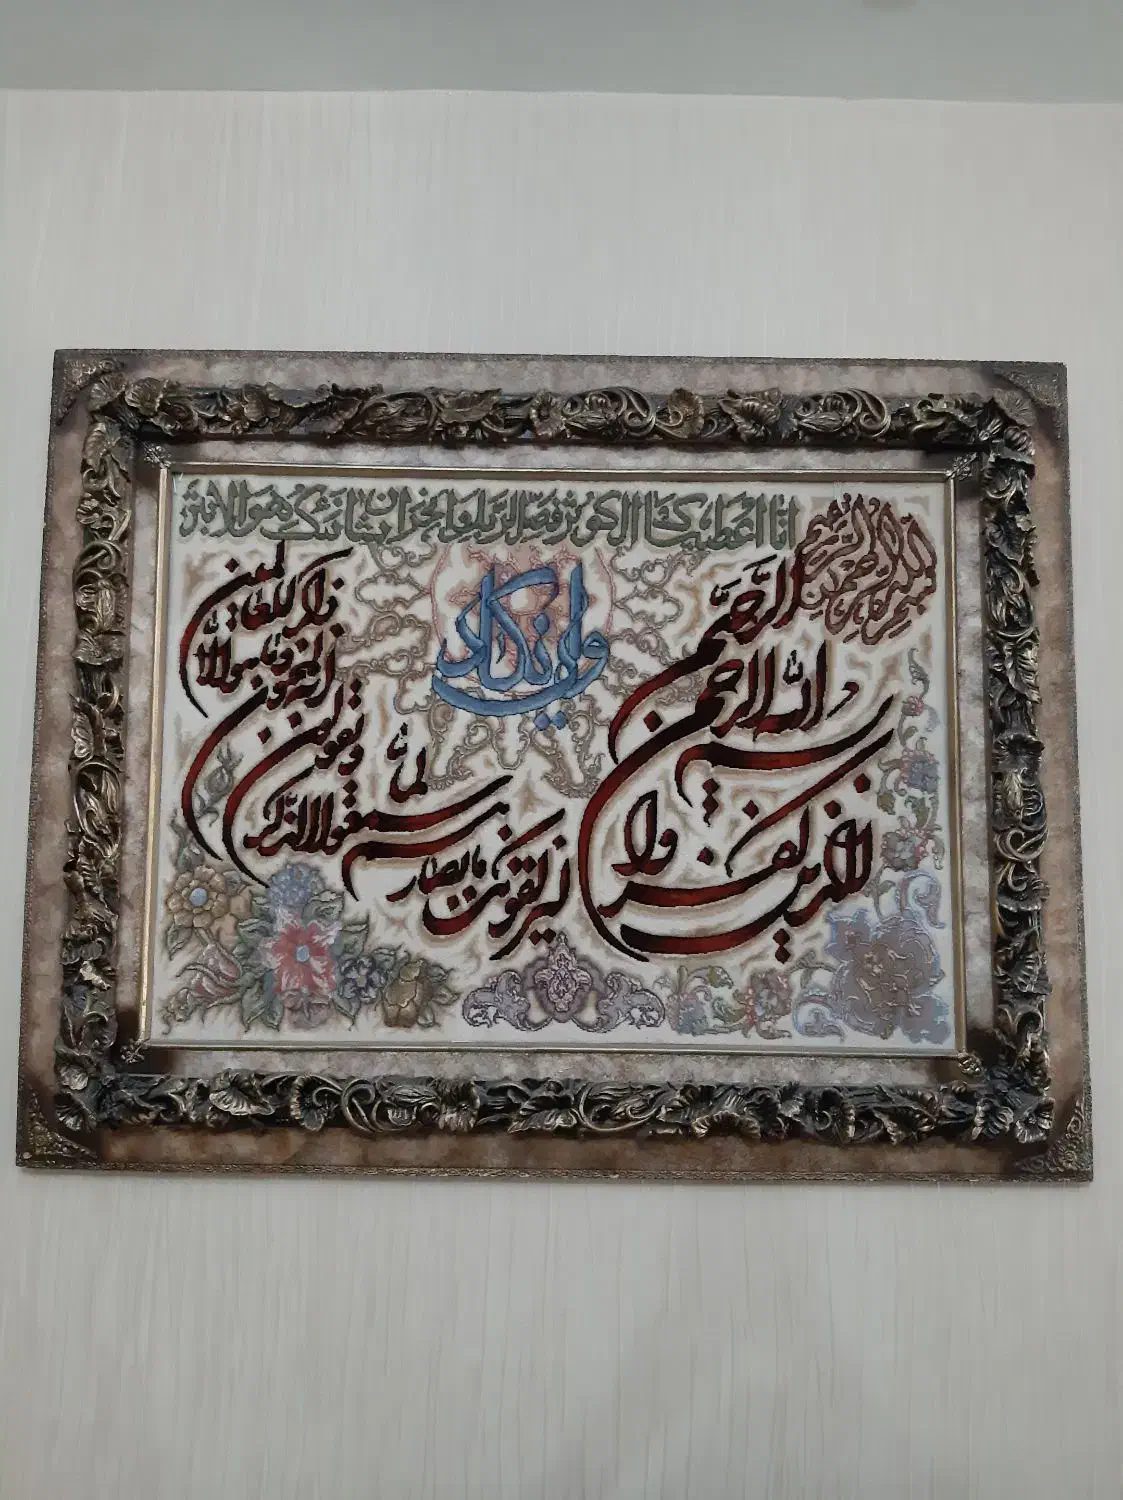 بسم الله الرحمن الرحیم
انا اعطیناک الکوثر فصل لربک وانحر ان شانئک هو الابتر
بسم الله الرحمن الرحیم
وان یکاد
الذین کفروا
لیزلقونک بابصارهم
لما سمعوا الذکر
ویقولون
انه لمجنون وما هو الا
ذکر للعالمین